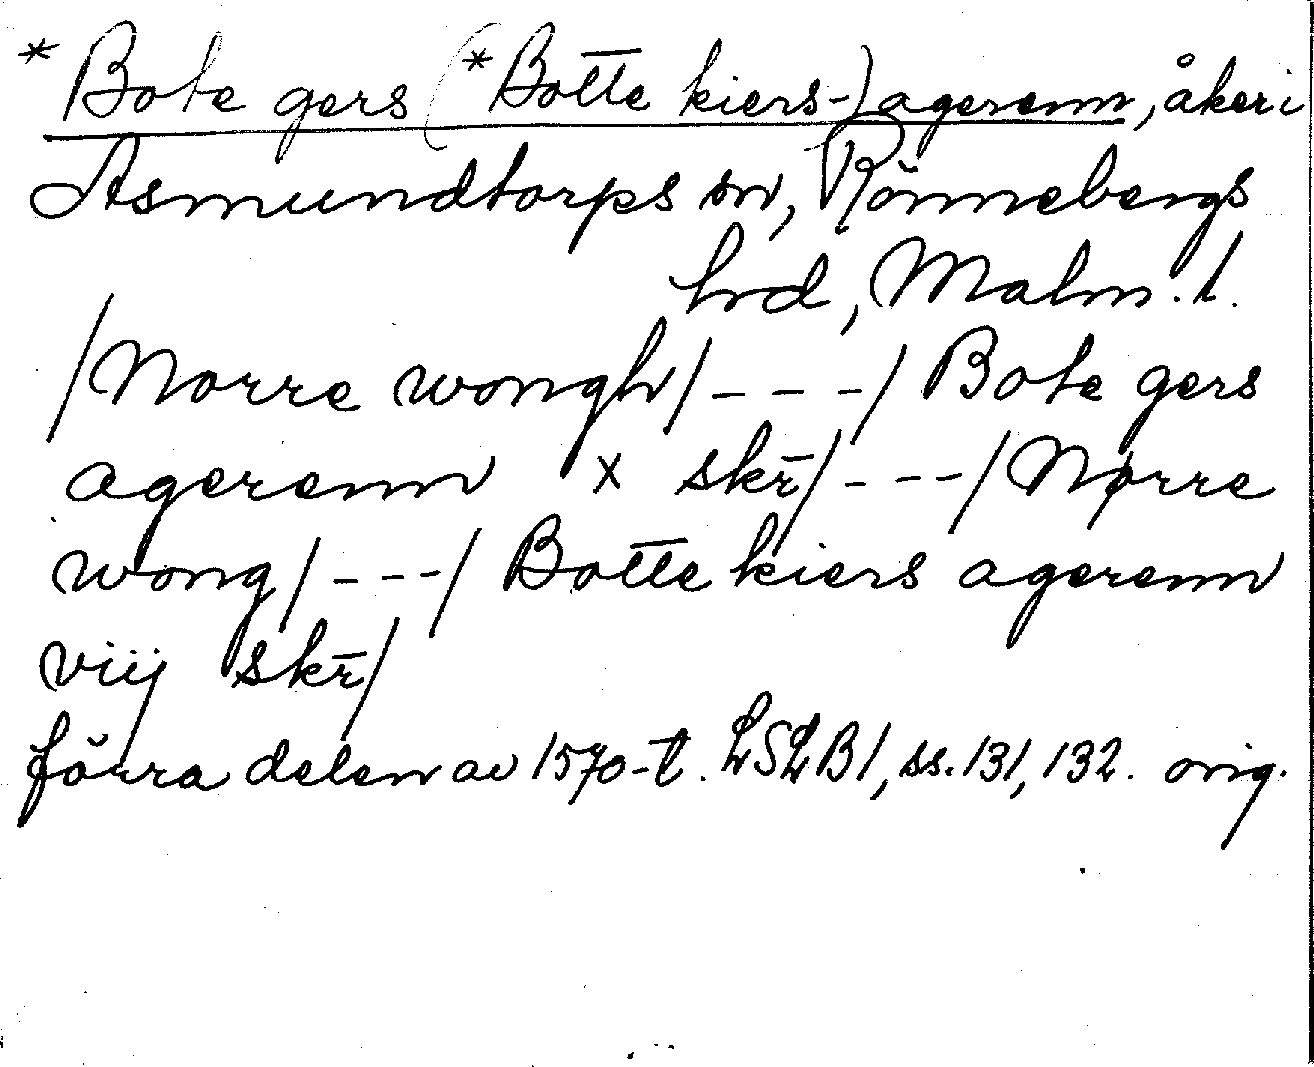 *Bote gers (*Bot̄t̄e kiers-) agerenn, åker i
Asmundtorps sn, Rönnebergs
hrd, Malm. l.
/Norre wongh/ - - - / Bote gers
agerenn x skr̄/ - - - / Nørre
wong/ - - - / Bot̄t̄e kiers agerenn
viij skr̄/
förra delen av 1570-t. LSLB1, ss. 131, 132. orig.